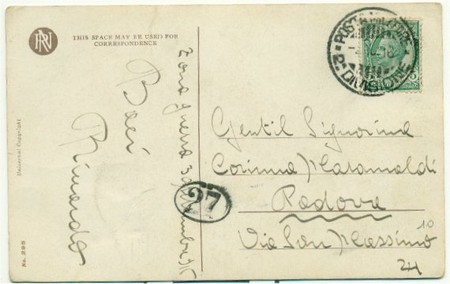 RN
THIS SPACE MAY BE USED FOR
CORRESPONDENCE
Universal Copyright
No. 295
Zona guerra 30
Baci
Rinardo
27
POSTA MILITARE
2ª DIVISIONE
5
Gentil Signorina
Corinna
Padova
Via San Massimo 10
24